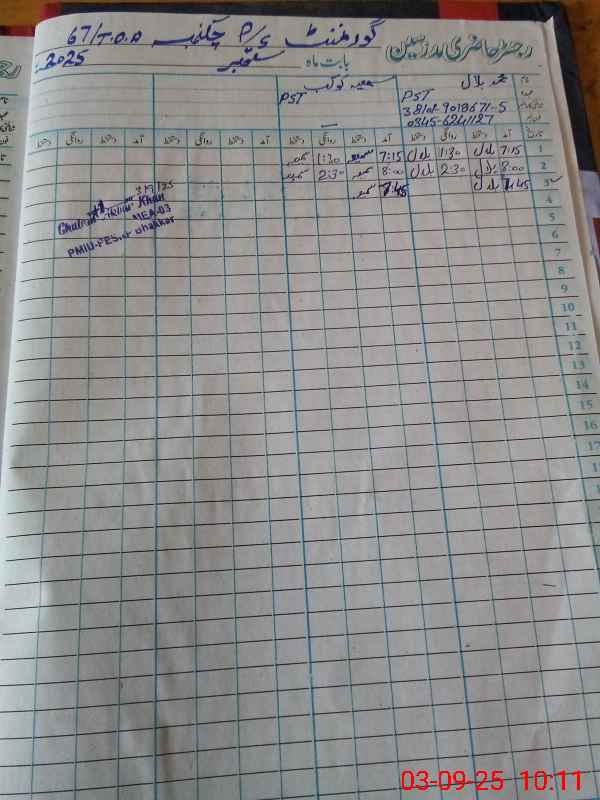 رجسٹر حاضری مدرسین گورنمنٹ P/S چکنمبر 67/T.D.A
بابت ماہ ستمبر 2025
نام محمد بلال سمعیہ کوکب
PST PST
38101-9018671-5
0345-6241127
تاریخ آمد دستخط روانگی دستخط آمد دستخط روانگی دستخط آمد دستخط روانگی دستخط آمد دستخط روانگی دستخط
1 7:15 بلال 1:30 بلال 7:15 1:30
2 8:00 بلال 2:30 بلال 8:00 2:30
3 7:45 بلال 7:45
4
5
6
7
8
9
10
11
12
13
14
15
16
17
3/9/25
Khan
MEA-03
PMIU-PESRP Bhakkar
03-09-25 10:11